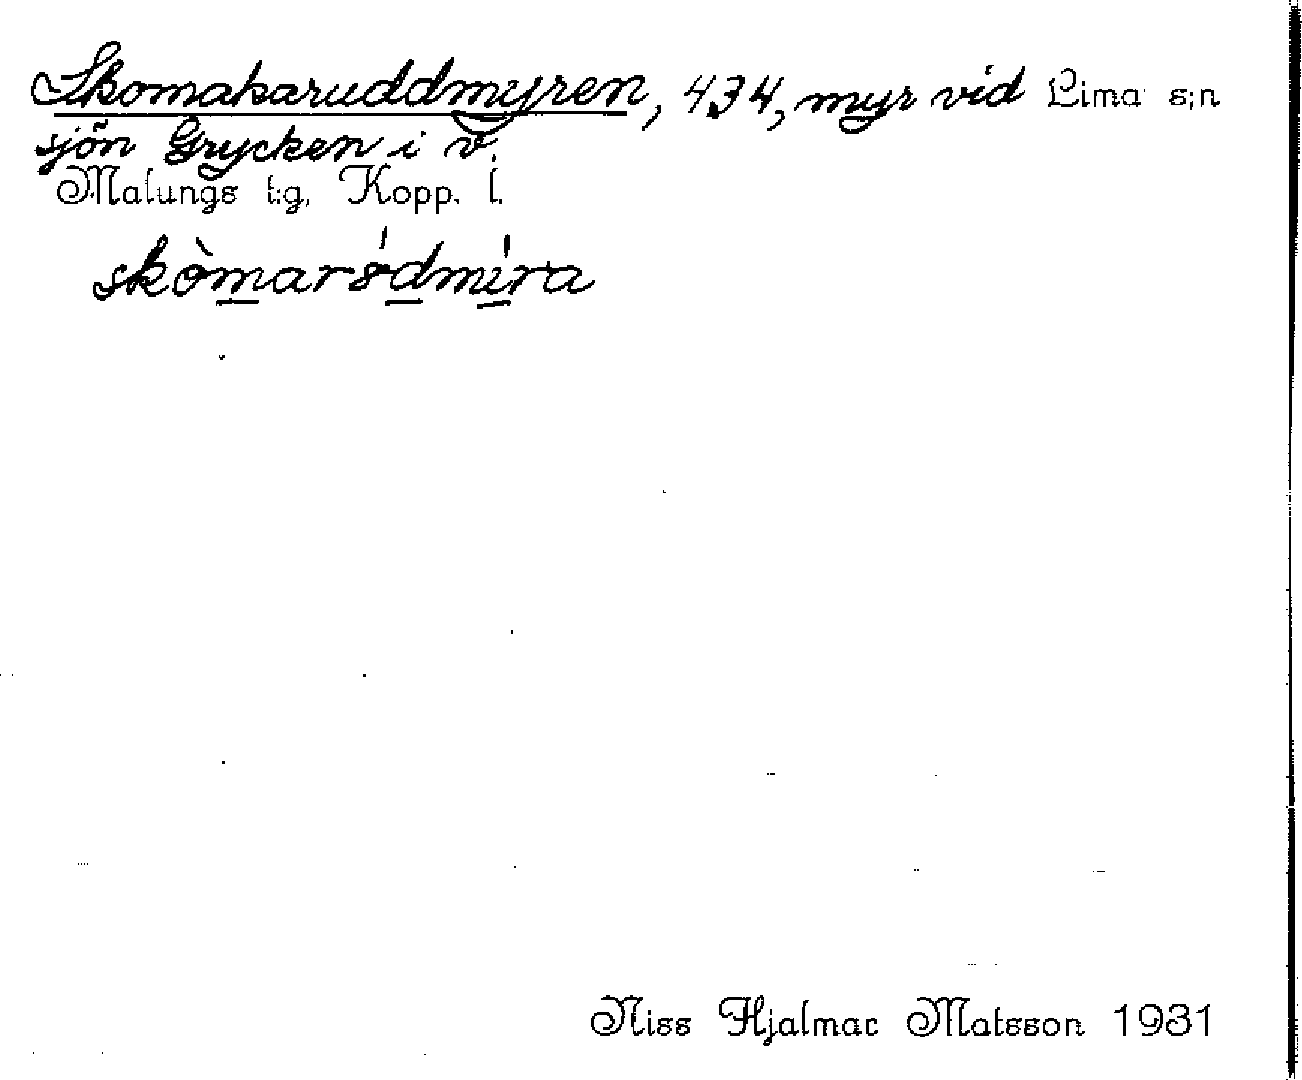 Skomakaruddmyren, 434, myr vid Lima s:n
sjön Grycken i v.
Malungs t:g, Kopp. l.
skòmaródmíra
Niss Hjalmar Matsson 1931